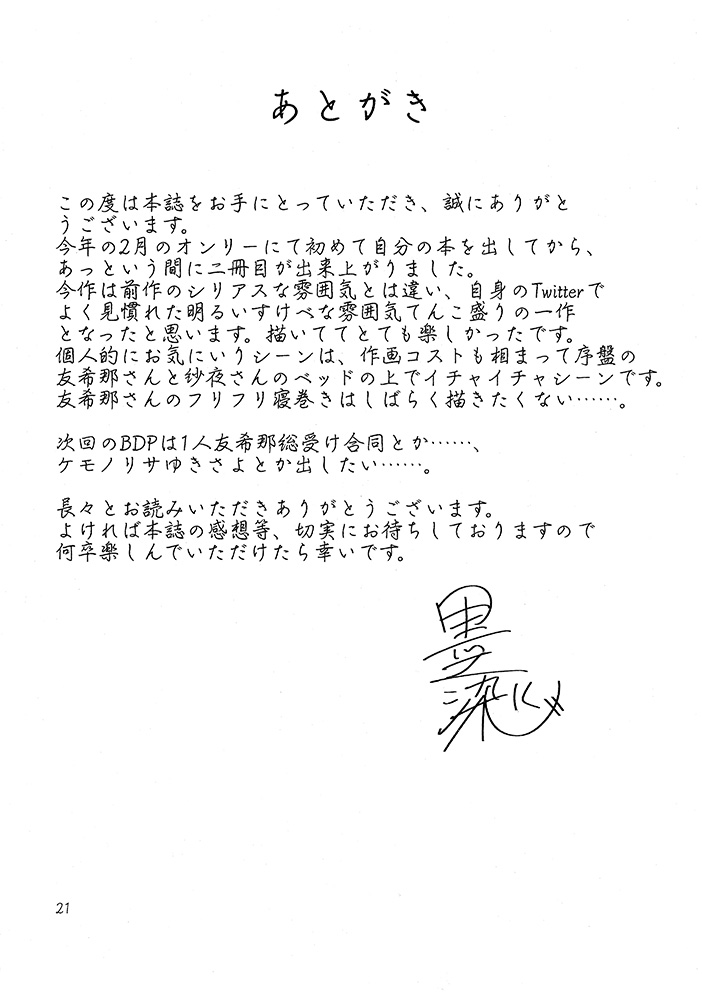 あとがき
この度は本誌をお手にとっていただき、誠にありがと
うございます。
今年の2月のオンリーにて初めて自分の本を出してから、
あっという間に二冊目が出来上がりました。
今作は前作のシリアスな雰囲気とは違い、自身のTwitterで
よく見慣れた明るいすけべな雰囲気てんこ盛りの一作
となったと思います。描いててとても楽しかったです。
個人的にお気にいりシーンは、作画コストも相まって序盤の
友希那さんと紗夜さんのベッドの上でイチャイチャシーンです。
友希那さんのフリフリ寝巻きはしばらく描きたくない……。
次回のBDPは1人友希那総受け合同とか……、
ケモノリサゆきさよとか出したい……。
長々とお読みいただきありがとうございます。
よければ本誌の感想等、切実にお待ちしておりますので
何卒楽しんでいただけたら幸いです。
墨
染
21